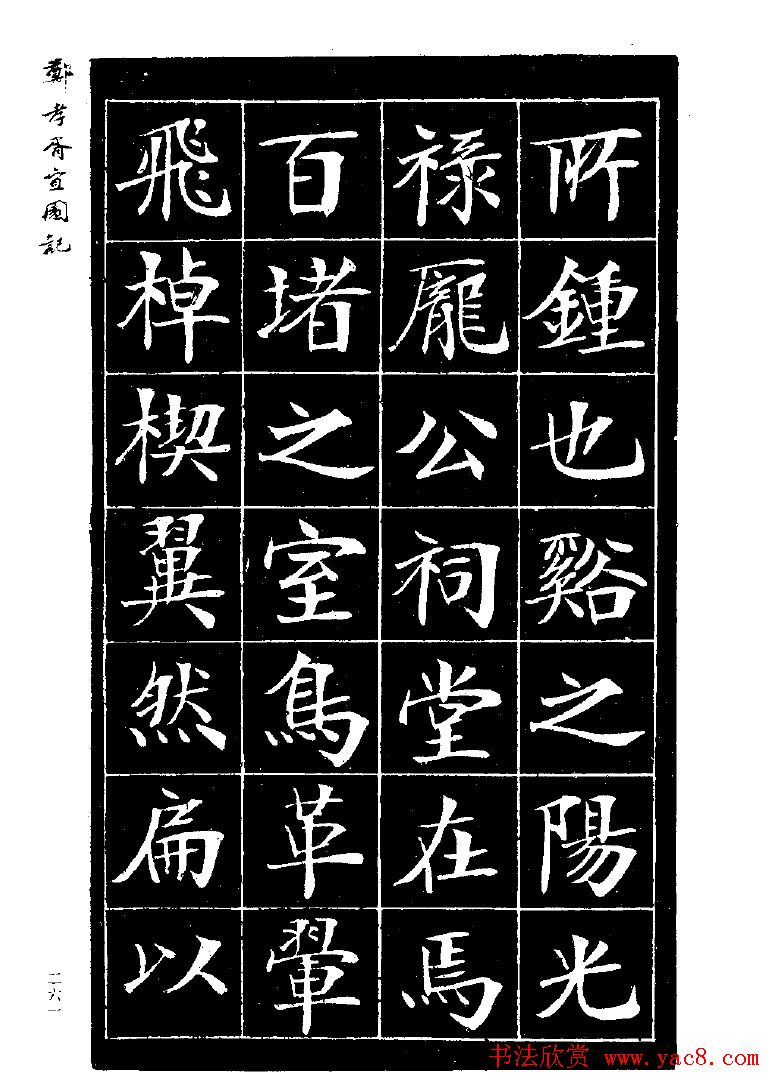 所鍾也谿之陽光
禄龐公祠堂在焉
百堵之室鳥革翬
飛棹楔翼然扁以
鄭孝胥宜園記
二六一
书法欣赏 www.yac8.com